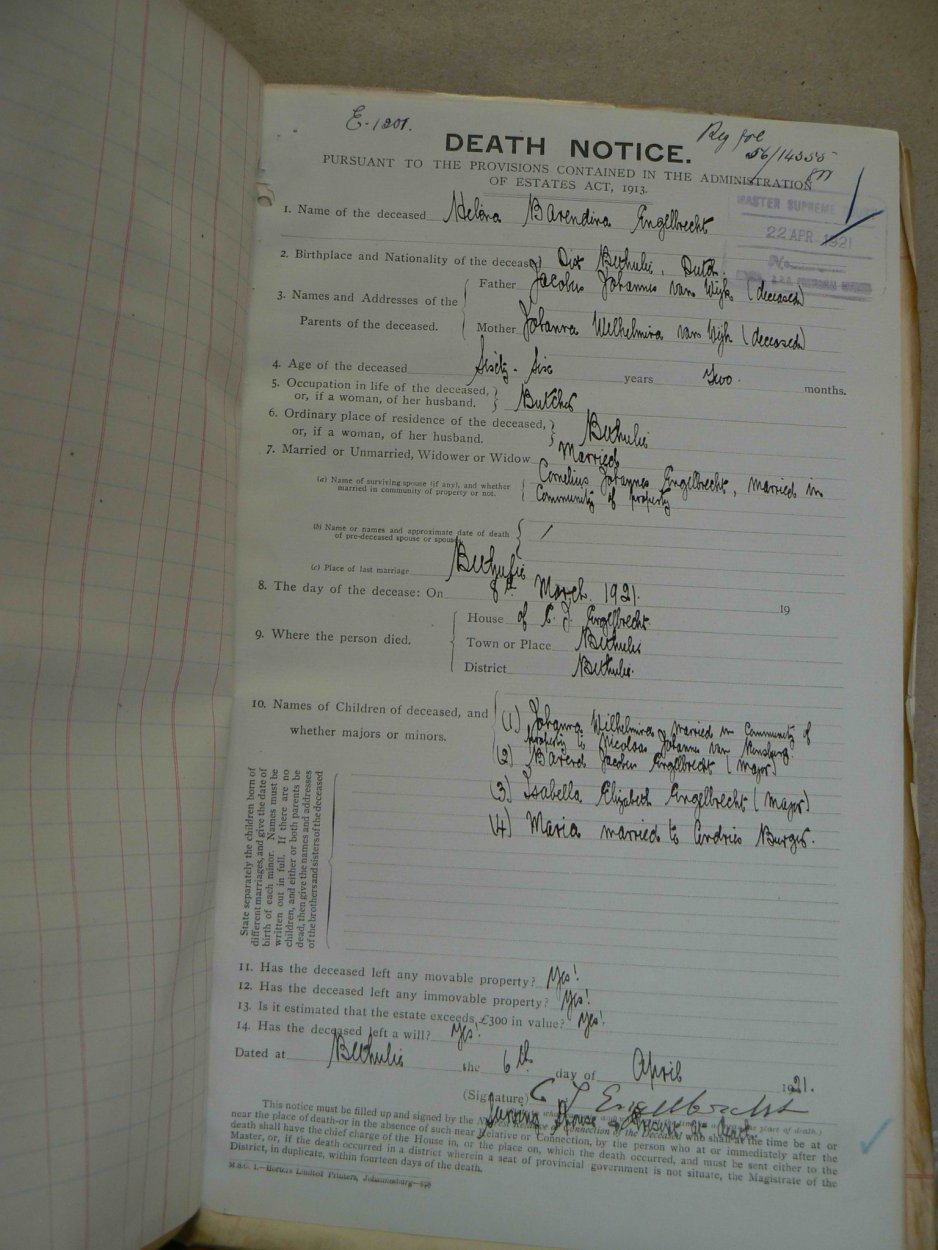 E-1201.
DEATH NOTICE.
PURSUANT TO THE PROVISIONS CONTAINED IN THE ADMINISTRATION
OF ESTATES ACT, 1913.
MASTER SUPREME
22 APR 1921
1. Name of the deceased Helena Barendina Engelbrecht
2. Birthplace and Nationality of the deceased Dist Bethulie, Dutch.
3. Names and Addresses of the Parents of the deceased.
Father Jacobus Johannes van Wijk (deceased)
Mother Johanna Wilhelmina van Wijk (deceased)
4. Age of the deceased Sixty-Six years Two months.
5. Occupation in life of the deceased, or, if a woman, of her husband. Butcher
6. Ordinary place of residence of the deceased, or, if a woman, of her husband. Bethulie
7. Married or Unmarried, Widower or Widow Married
(a) Name of surviving spouse (if any), and whether married in community of property or not. Cornelius Johannes Engelbrecht, married in
Community of property
(b) Name or names and approximate date of death of pre-deceased spouse or spouses /
(c) Place of last marriage Bethulie
8. The day of the decease: On 8th March 1921. 19
9. Where the person died.
House of C. J. Engelbrecht
Town or Place Bethulie
District Bethulie.
10. Names of Children of deceased, and whether majors or minors.
(1) Johanna Wilhelmina married in Community of
property to Nicolaas Johannes van Rensburg.
(2) Barend Jacobus Engelbrecht (Major)
(3) Isabella Elizabeth Engelbrecht (Major)
(4) Maria married to Hendrics Burger.
State separately the children born of
different marriages, and give the date of
birth of each minor. Names must be
written out in full. If there are no
children, and either or both parents be
dead, then give the names and addresses
of the brothers and sisters of the deceased
11. Has the deceased left any movable property? Yes!
12. Has the deceased left any immovable property? Yes!
13. Is it estimated that the estate exceeds £300 in value? Yes!
14. Has the deceased left a will? Yes!
Dated at Bethulie the 6th day of April 1921.
(Signature) C J Engelbrecht
This notice must be filled up and signed by the Nearest Relative or Connection of the Deceased who shall at the time be at or
near the place of death-or in the absence of such near Relative or Connection, by the person who at or immediately after the
death shall have the chief charge of the House in, or the place on, which the death occurred, and must be sent either to the
Master, or, if the death occurred in a district wherein a seat of provincial government is not situate, the Magistrate of the
District, in duplicate, within fourteen days of the death.
M.S.C. 1.—Hortors Limited Printers, Johannesburg